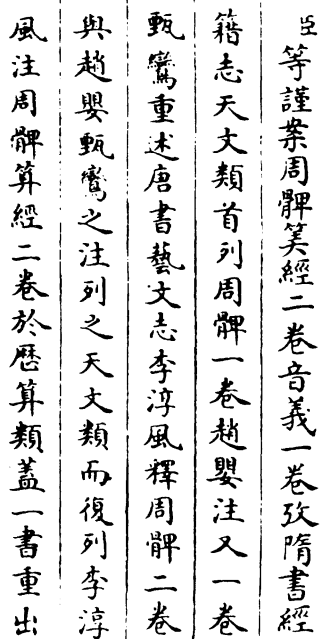 臣等謹案周髀算經二卷音義一卷攷隋書經
籍志天文類首列周髀一卷趙嬰注又一卷
甄鸞重述唐書藝文志李淳風釋周髀二卷
與趙嬰甄鸞之注列之天文類而復列李淳
風注周髀算經二卷於歷算類蓋一書重出